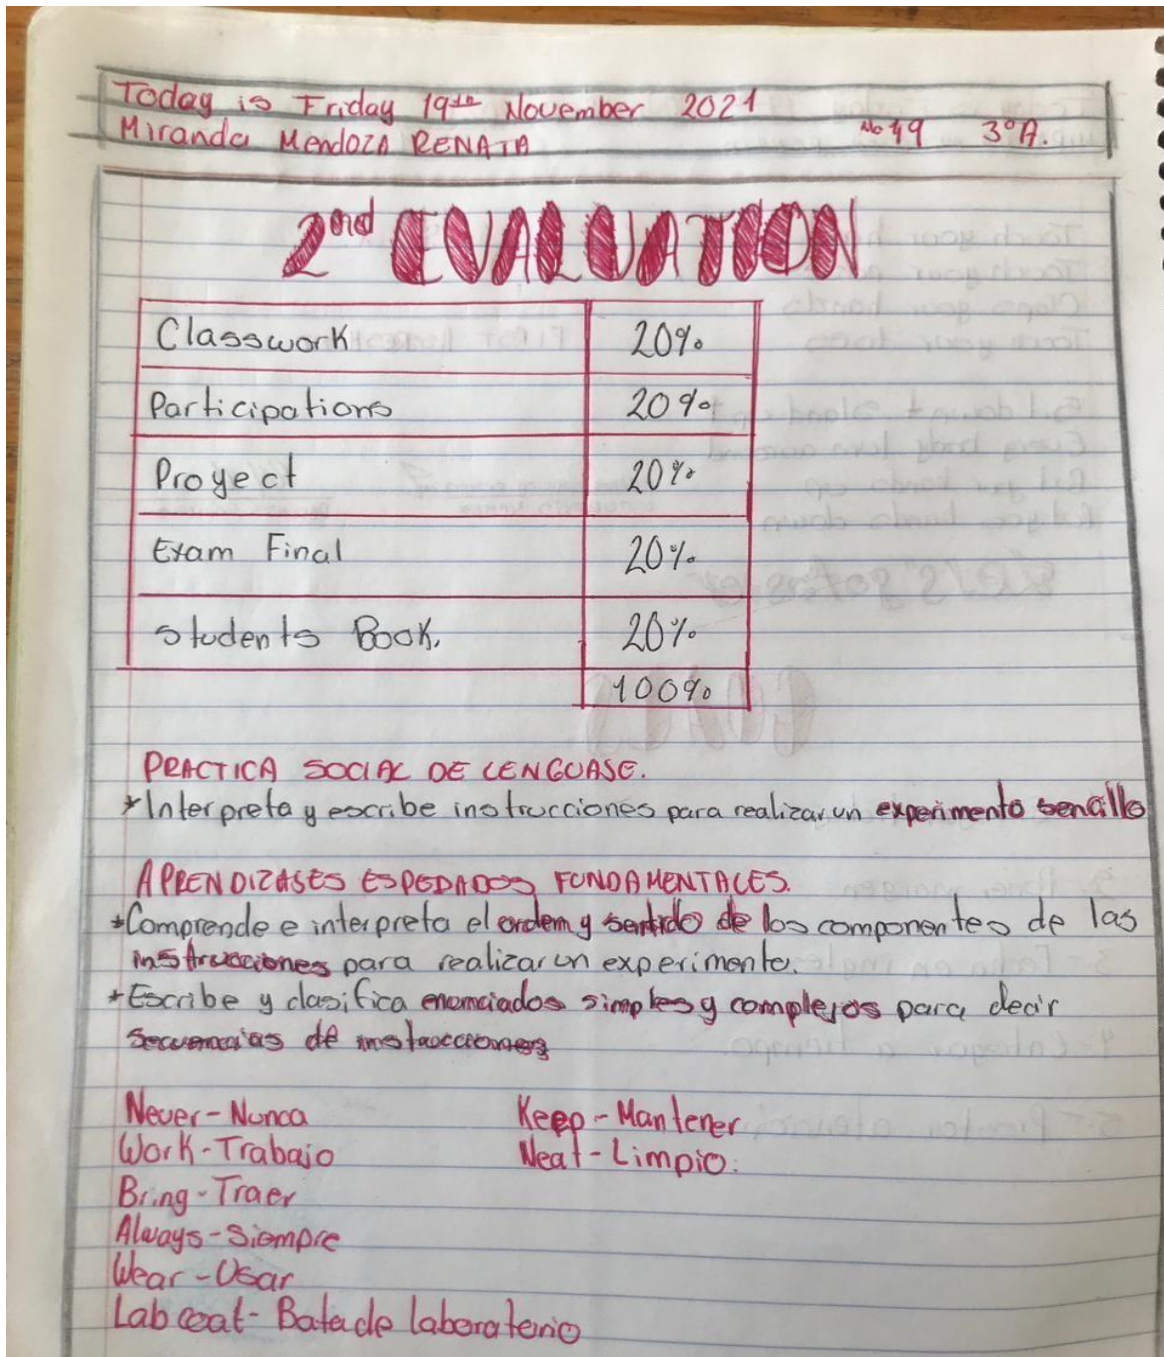 Today is Friday 19th November 2021
Miranda Mendoza RENATA No 49 3°A.
2nd EVALUATION
Classwork 20%
Participations 20%
Proyect 20%
Exam Final 20%
Students Book. 20%
100%
PRACTICA SOCIAL DE LENGUASE.
*Interpreta y escribe instrucciones para realizar un experimento sencillo
APRENDIZASES ESPEDADOS FUNDAMENTALES.
*Comprende e interpreta el orden y sentido de los componentes de las
instrucciones para realizar un experimento.
*Escribe y clasifica enunciados simples y complejos para decir
secuencias de instrucciones
Never-Nunca Keep-Mantener
Work-Trabajo Neat-Limpio.
Bring-Traer
Always-Siempre
Wear-Usar
Lab coat-Bata de laboratorio